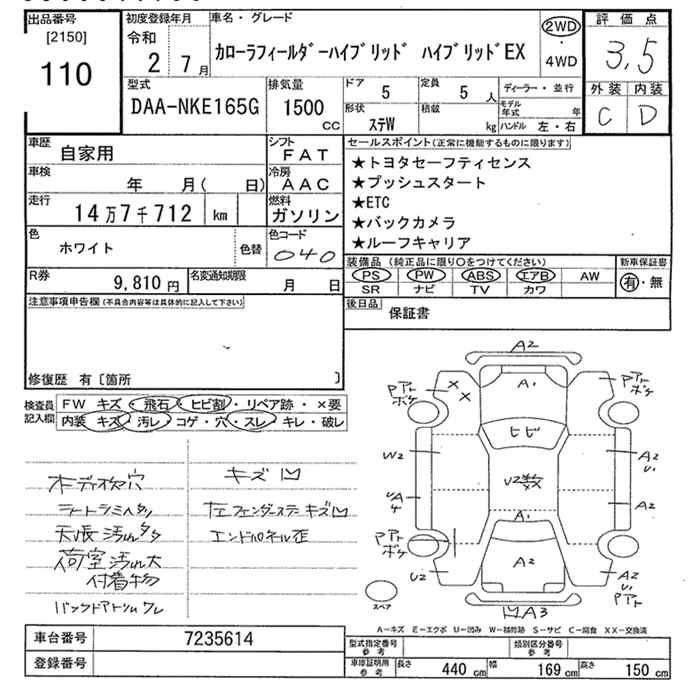 出品番号
[2150]
110
初度登録年月
令和
2 7月
車名・グレード
カローラフィールダーハイブリッド ハイブリッドEX
2WD
・
4WD
評価点
3,5
外装 内装
C D
型式
DAA-NKE165G
排気量
1500
CC
ドア
5
定員
5 人
形状
ステW
積載
kg
ディーラー・並行
モデル年式 年
ハンドル 左・右
車歴
自家用
シフト
FAT
車検
年 月( 日)
冷房
AAC
走行
14万7千712 km
燃料
ガソリン
色
ホワイト
色替
色コード
040
R券
9,810 円
名変通知期限
月 日
セールスポイント(正常に機能するものに限ります)
★トヨタセーフティセンス
★プッシュスタート
★ETC
★バックカメラ
★ルーフキャリア
装備品(純正品に限り○をつけてください)
PS PW ABS エアB AW
SR ナビ TV カワ
新車保証書
有・無
後日品
保証書
注意事項申告欄(不具合内容等は具体的に記入して下さい)
修復歴 有〔箇所 〕
検査員記入欄
FW キズ・飛石・ヒビ割・リペア跡・×要
内装 キズ・汚レ・コゲ・穴・スレ・キレ・破レ
キズ凹
天張汚れ多
荷室汚れ大
付着物
エンドパネル歪
A2
A1
Pアト
ボケ
Pアト
ボケ
ヒビ
W2
A2
U1
U2数
A2
Pアト
ボケ
A1
A2
U2
A2
U1
Pアト
凹A3
スペア
A-キズ E-エクボ U-凹み W-補修跡 S-サビ C-腐食 XX-交換済
車台番号
7235614
登録番号
型式指定番号
参考
類別区分番号
参考
車庫証明用
参考
長さ 440 cm 幅 169 cm 高さ 150 cm